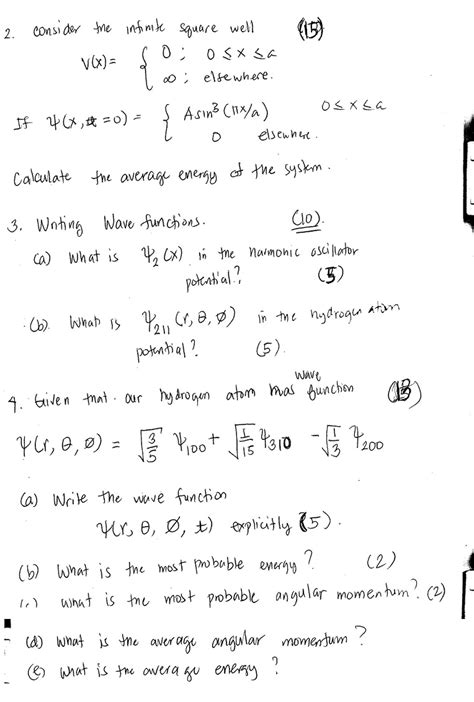 2. consider the infinite square well (15)
V(x) = { 0 ; 0 ≤ x ≤ a
∞ ; elsewhere.
If ψ(x, t = 0) = { A sin³(πx/a) 0 ≤ x ≤ a
0 elsewhere.
Calculate the average energy of the system.
3. Writing Wave functions. (10).
(a) What is ψ₂(x) in the harmonic oscillator
potential? (5)
(b). What is ψ₂₁₁(r, θ, ø) in the hydrogen atom
potential? (5).
4. Given that our hydrogen atom has wave function
ψ(r, θ, ø) = √(3/5) ψ₁₀₀ + √(1/15) ψ₃₁₀ - √(1/3) ψ₂₀₀
(a) Write the wave function
ψ(r, θ, ø, t) explicitly (5).
(b) What is the most probable energy? (2)
(c) what is the most probable angular momentum? (2)
(d) what is the average angular momentum?
(e) what is the average energy?